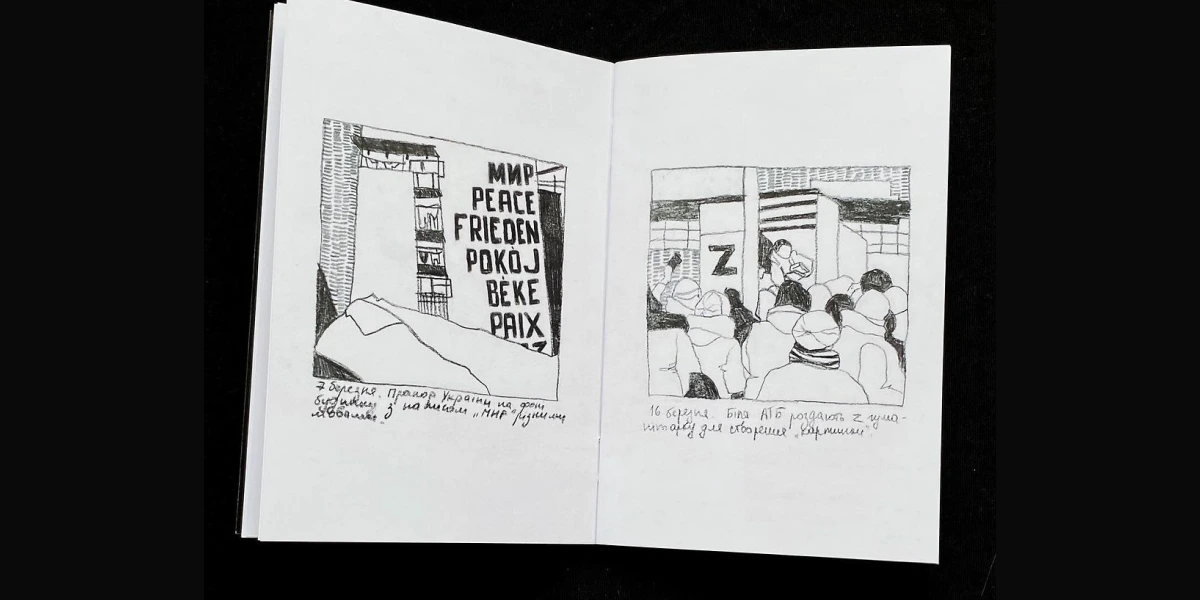 МИР
PEACE
FRIEDEN
POKÓJ
BÉKE
PAIX
7 березня. Прапор України на фоні
будинку з написом „МИР" різними
мовами.
Z
16 березня. Біля АТБ роздають Z гума-
нітарку для створення „картинки".